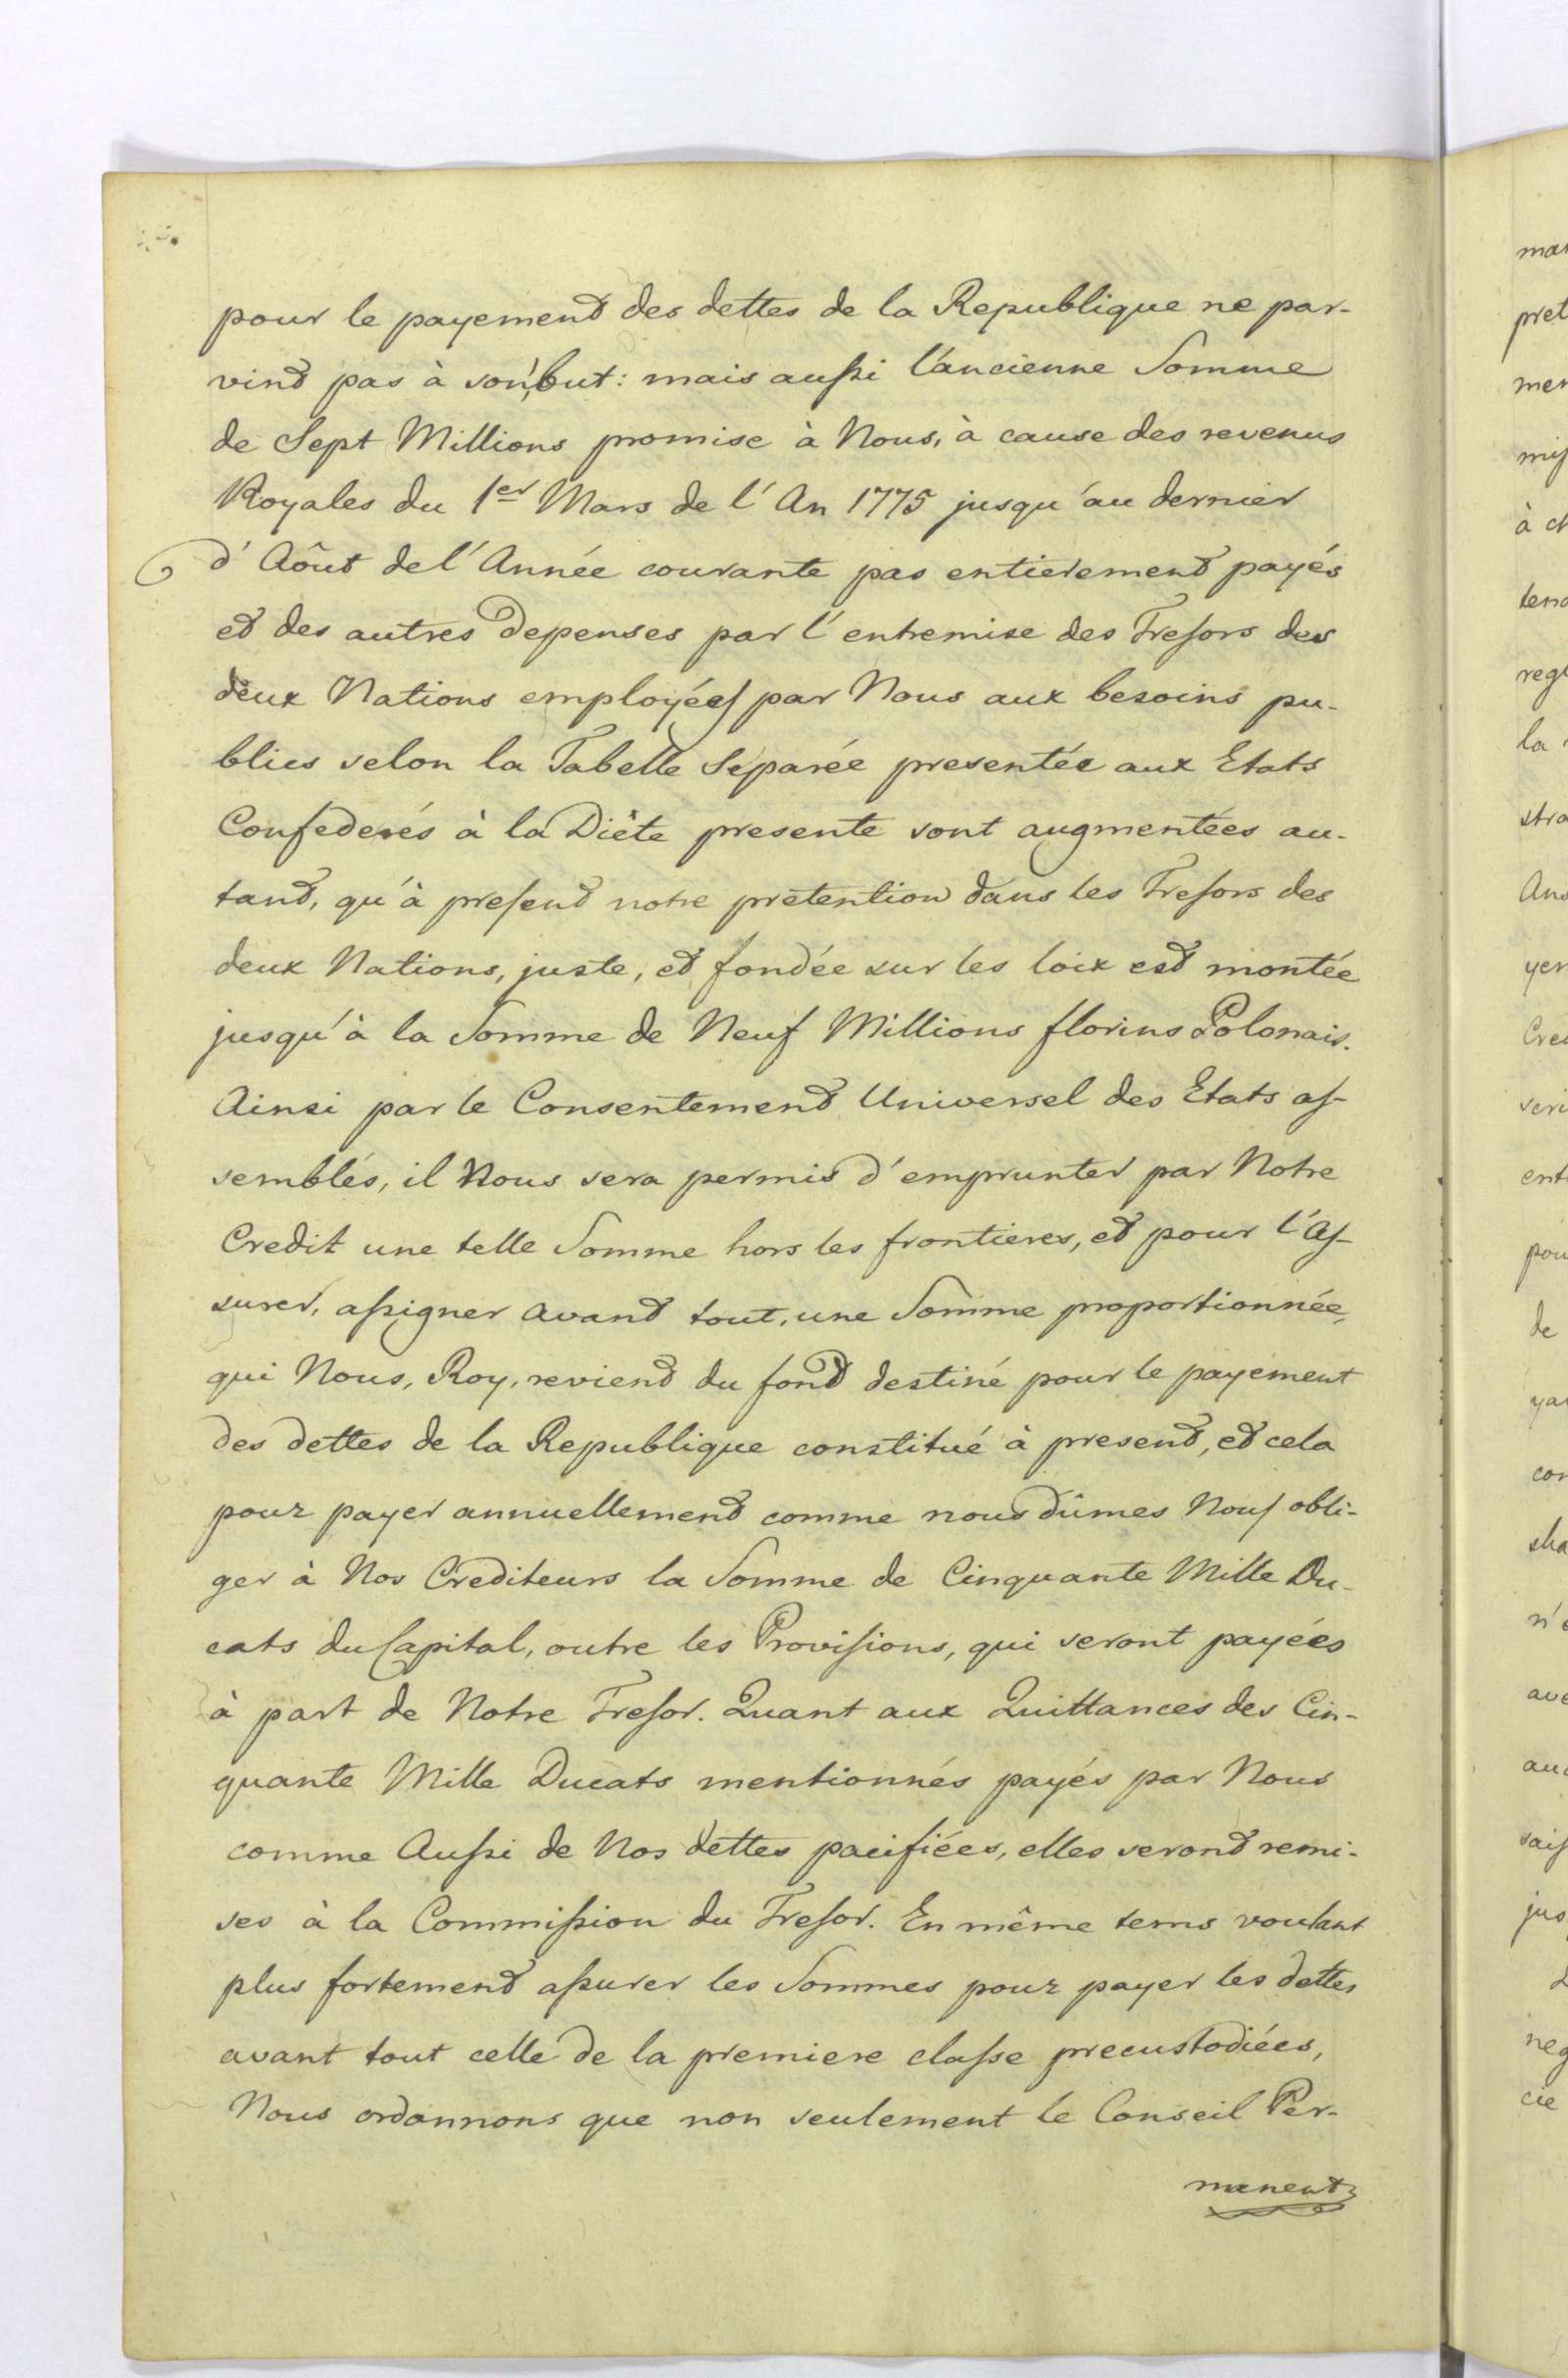 pour le payement des dettes de la Republique ne par-
vint pas à son but: mais aussi l'ancienne Somme
de Sept Millions promise à Nous, à cause des revenus
Royales du 1er Mars de l'An 1775 jusqu'au dernier
d'Aôut de l'Année courante pas entierement payés
et des autres depenses par l'entremise des Tresors des
deux Nations employées par Nous aux besoins pu-
blics selon la Tabelle Séparée presentée aux Etats
Confederés à la Diète presente sont augmentées au-
tant, qu'à present notre pretention dans les Tresors des
deux Nations, juste, et fondée sur les loix est montée
jusqu'à la Somme de Neuf Millions florins Polonais.
Ainsi par le Consentement Universel des Etats as-
semblés, il Nous sera permis d'emprunter par Notre
Credit une telle Somme hors les frontieres, et pour l'As-
surer, assigner avant tout, une Somme proportionnée,
qui Nous, Roy, revient du fond destiné pour le payement
des dettes de la Republique constitué à present, et cela
pour payer annuellement comme nous dûmes Nous obli-
ger à Nos Crediteurs la Somme de Cinquante Mille Du-
cats du Capital, outre les Provisions, qui seront payées
à part de Notre Tresor. Quant aux Quittances des Cin-
quante Mille Ducats mentionnés payés par Nous
comme Aussi de Nos dettes pacifiées, elles seront remi-
ses à la Commission du Tresor. En même tems voulant
plus fortement assurer les Sommes pour payer les dettes
avant tout celle de la premiere classe precustodiées,
Nous ordonnons que non seulement le Conseil Per-
manent